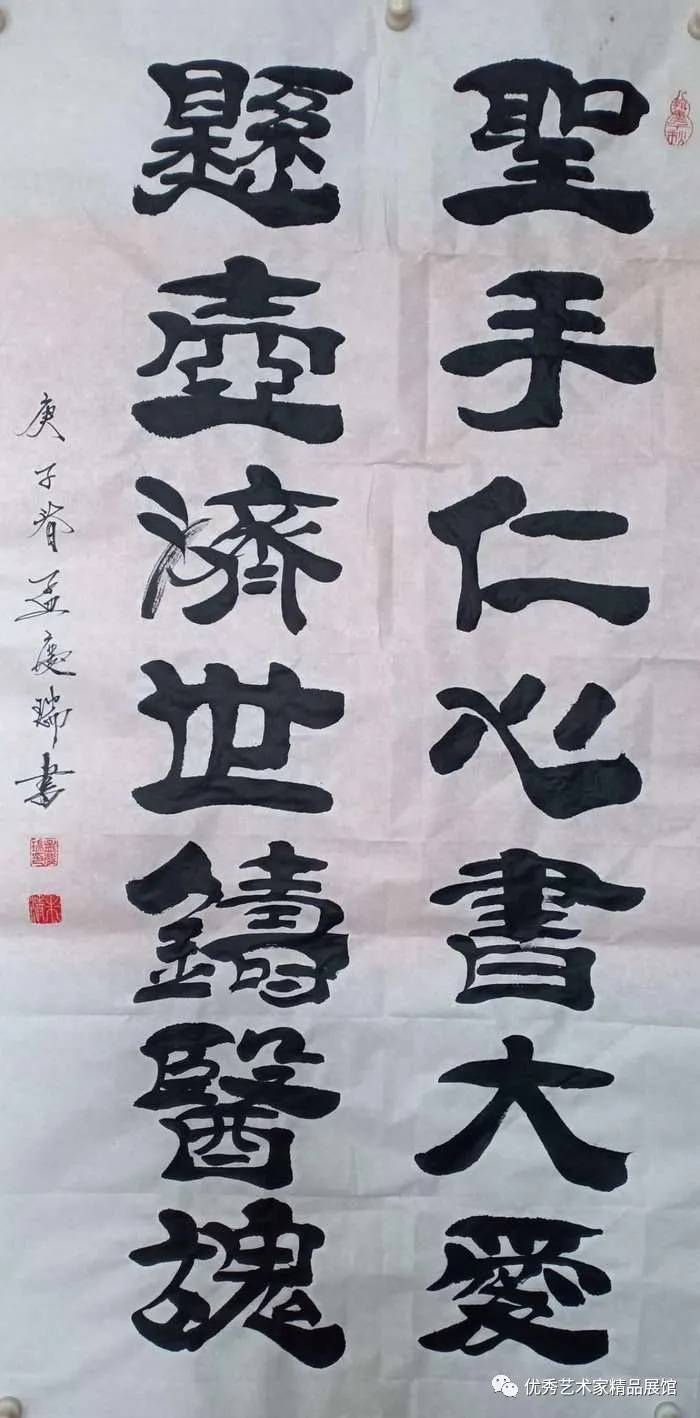 聖手仁心書大愛
懸壺濟世鑄醫魂
庚子春孟慶瑞書
优秀艺术家精品展馆